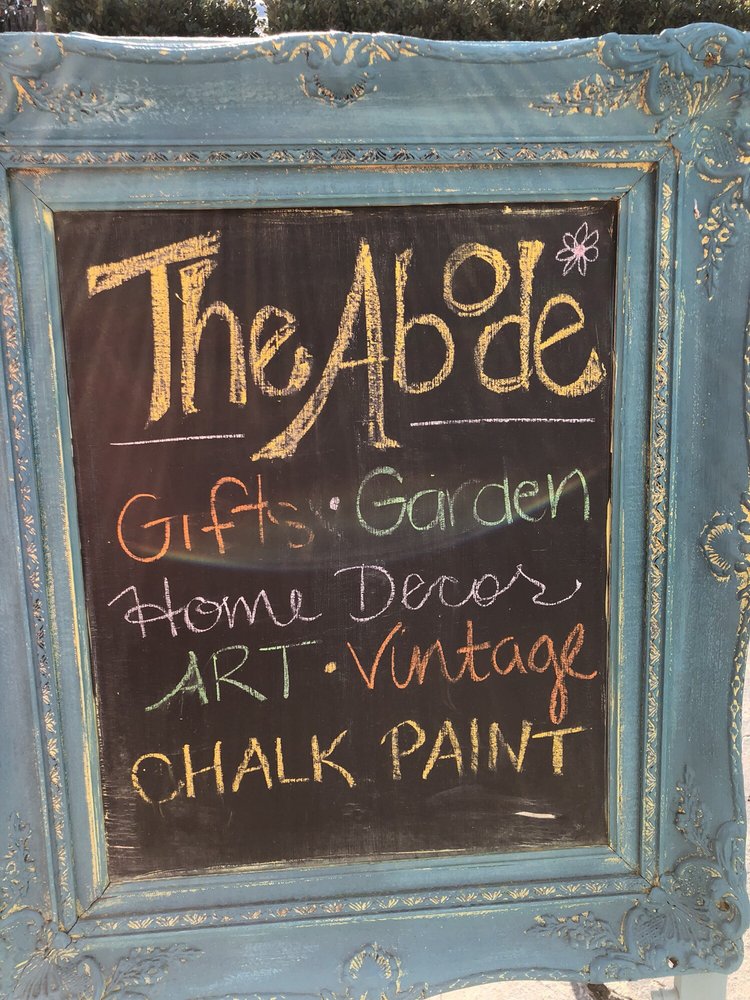 The Abode
Gifts • Garden
Home Decor
ART • Vintage
CHALK PAINT